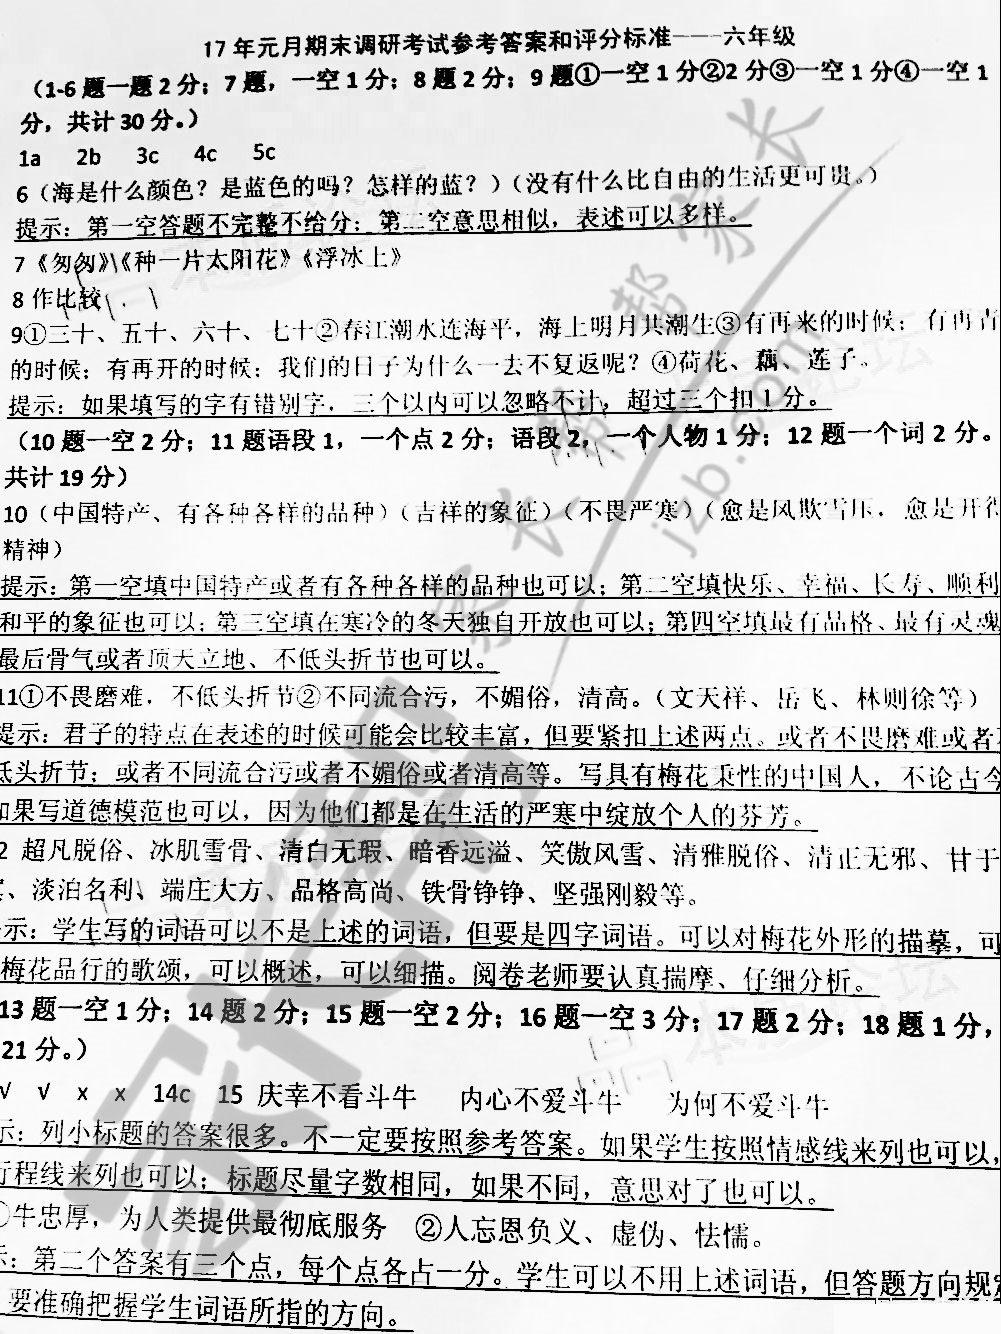 17年元月期末调研考试参考答案和评分标准----六年级
（1-6题一题2分；7题，一空1分；8题2分；9题①一空1分②2分③一空1分④一空1
分，共计30分。）
1a 2b 3c 4c 5c
6（海是什么颜色？是蓝色的吗？怎样的蓝？）（没有什么比自由的生活更可贵。）
提示：第一空答题不完整不给分；第二空意思相似，表述可以多样。
7《匆匆》《种一片太阳花》《浮冰上》
8作比较
9①三十、五十、六十、七十②春江潮水连海平，海上明月共潮生③有再来的时候；有再青
的时候；有再开的时候；我们的日子为什么一去不复返呢？④荷花、藕、莲子。
提示：如果填写的字有错别字，三个以内可以忽略不计，超过三个扣1分。
（10题一空2分；11题语段1，一个点2分；语段2，一个人物1分；12题一个词2分。
共计19分）
10（中国特产、有各种各样的品种）（吉祥的象征）（不畏严寒）（愈是风欺雪压，愈是开得
精神）
提示：第一空填中国特产或者有各种各样的品种也可以；第二空填快乐、幸福、长寿、顺利
和平的象征也可以；第三空填在寒冷的冬天独自开放也可以；第四空填最有品格、最有灵魂
最后骨气或者顶天立地、不低头折节也可以。
11①不畏磨难，不低头折节②不同流合污，不媚俗，清高。（文天祥、岳飞、林则徐等）
提示：君子的特点在表述的时候可能会比较丰富，但要紧扣上述两点。或者不畏磨难或者
低头折节；或者不同流合污或者不媚俗或者清高等。写具有梅花秉性的中国人，不论古今
如果写道德模范也可以，因为他们都是在生活的严寒中绽放个人的芬芳。
2 超凡脱俗、冰肌雪骨、清白无瑕、暗香远溢、笑傲风雪、清雅脱俗、清正无邪、甘于
、淡泊名利、端庄大方、品格高尚、铁骨铮铮、坚强刚毅等。
示：学生写的词语可以不是上述的词语，但要是四字词语。可以对梅花外形的描摹，可
梅花品行的歌颂，可以概述，可以细描。阅卷老师要认真揣摩、仔细分析。
13题一空1分；14题2分；15题一空2分；16题一空3分；17题2分；18题1分，
21分。）
√ √ x x 14c 15 庆幸不看斗牛 内心不爱斗牛 为何不爱斗牛
示：列小标题的答案很多。不一定要按照参考答案。如果学生按照情感线来列也可以，
行程线来列也可以；标题尽量字数相同，如果不同，意思对了也可以。
①牛忠厚，为人类提供最彻底服务 ②人忘恩负义、虚伪、怯懦。
示：第二个答案有三个点，每个点各占一分。学生可以不用上述词语，但答题方向规定
要准确把握学生词语所指的方向。
家长帮
jzb.com